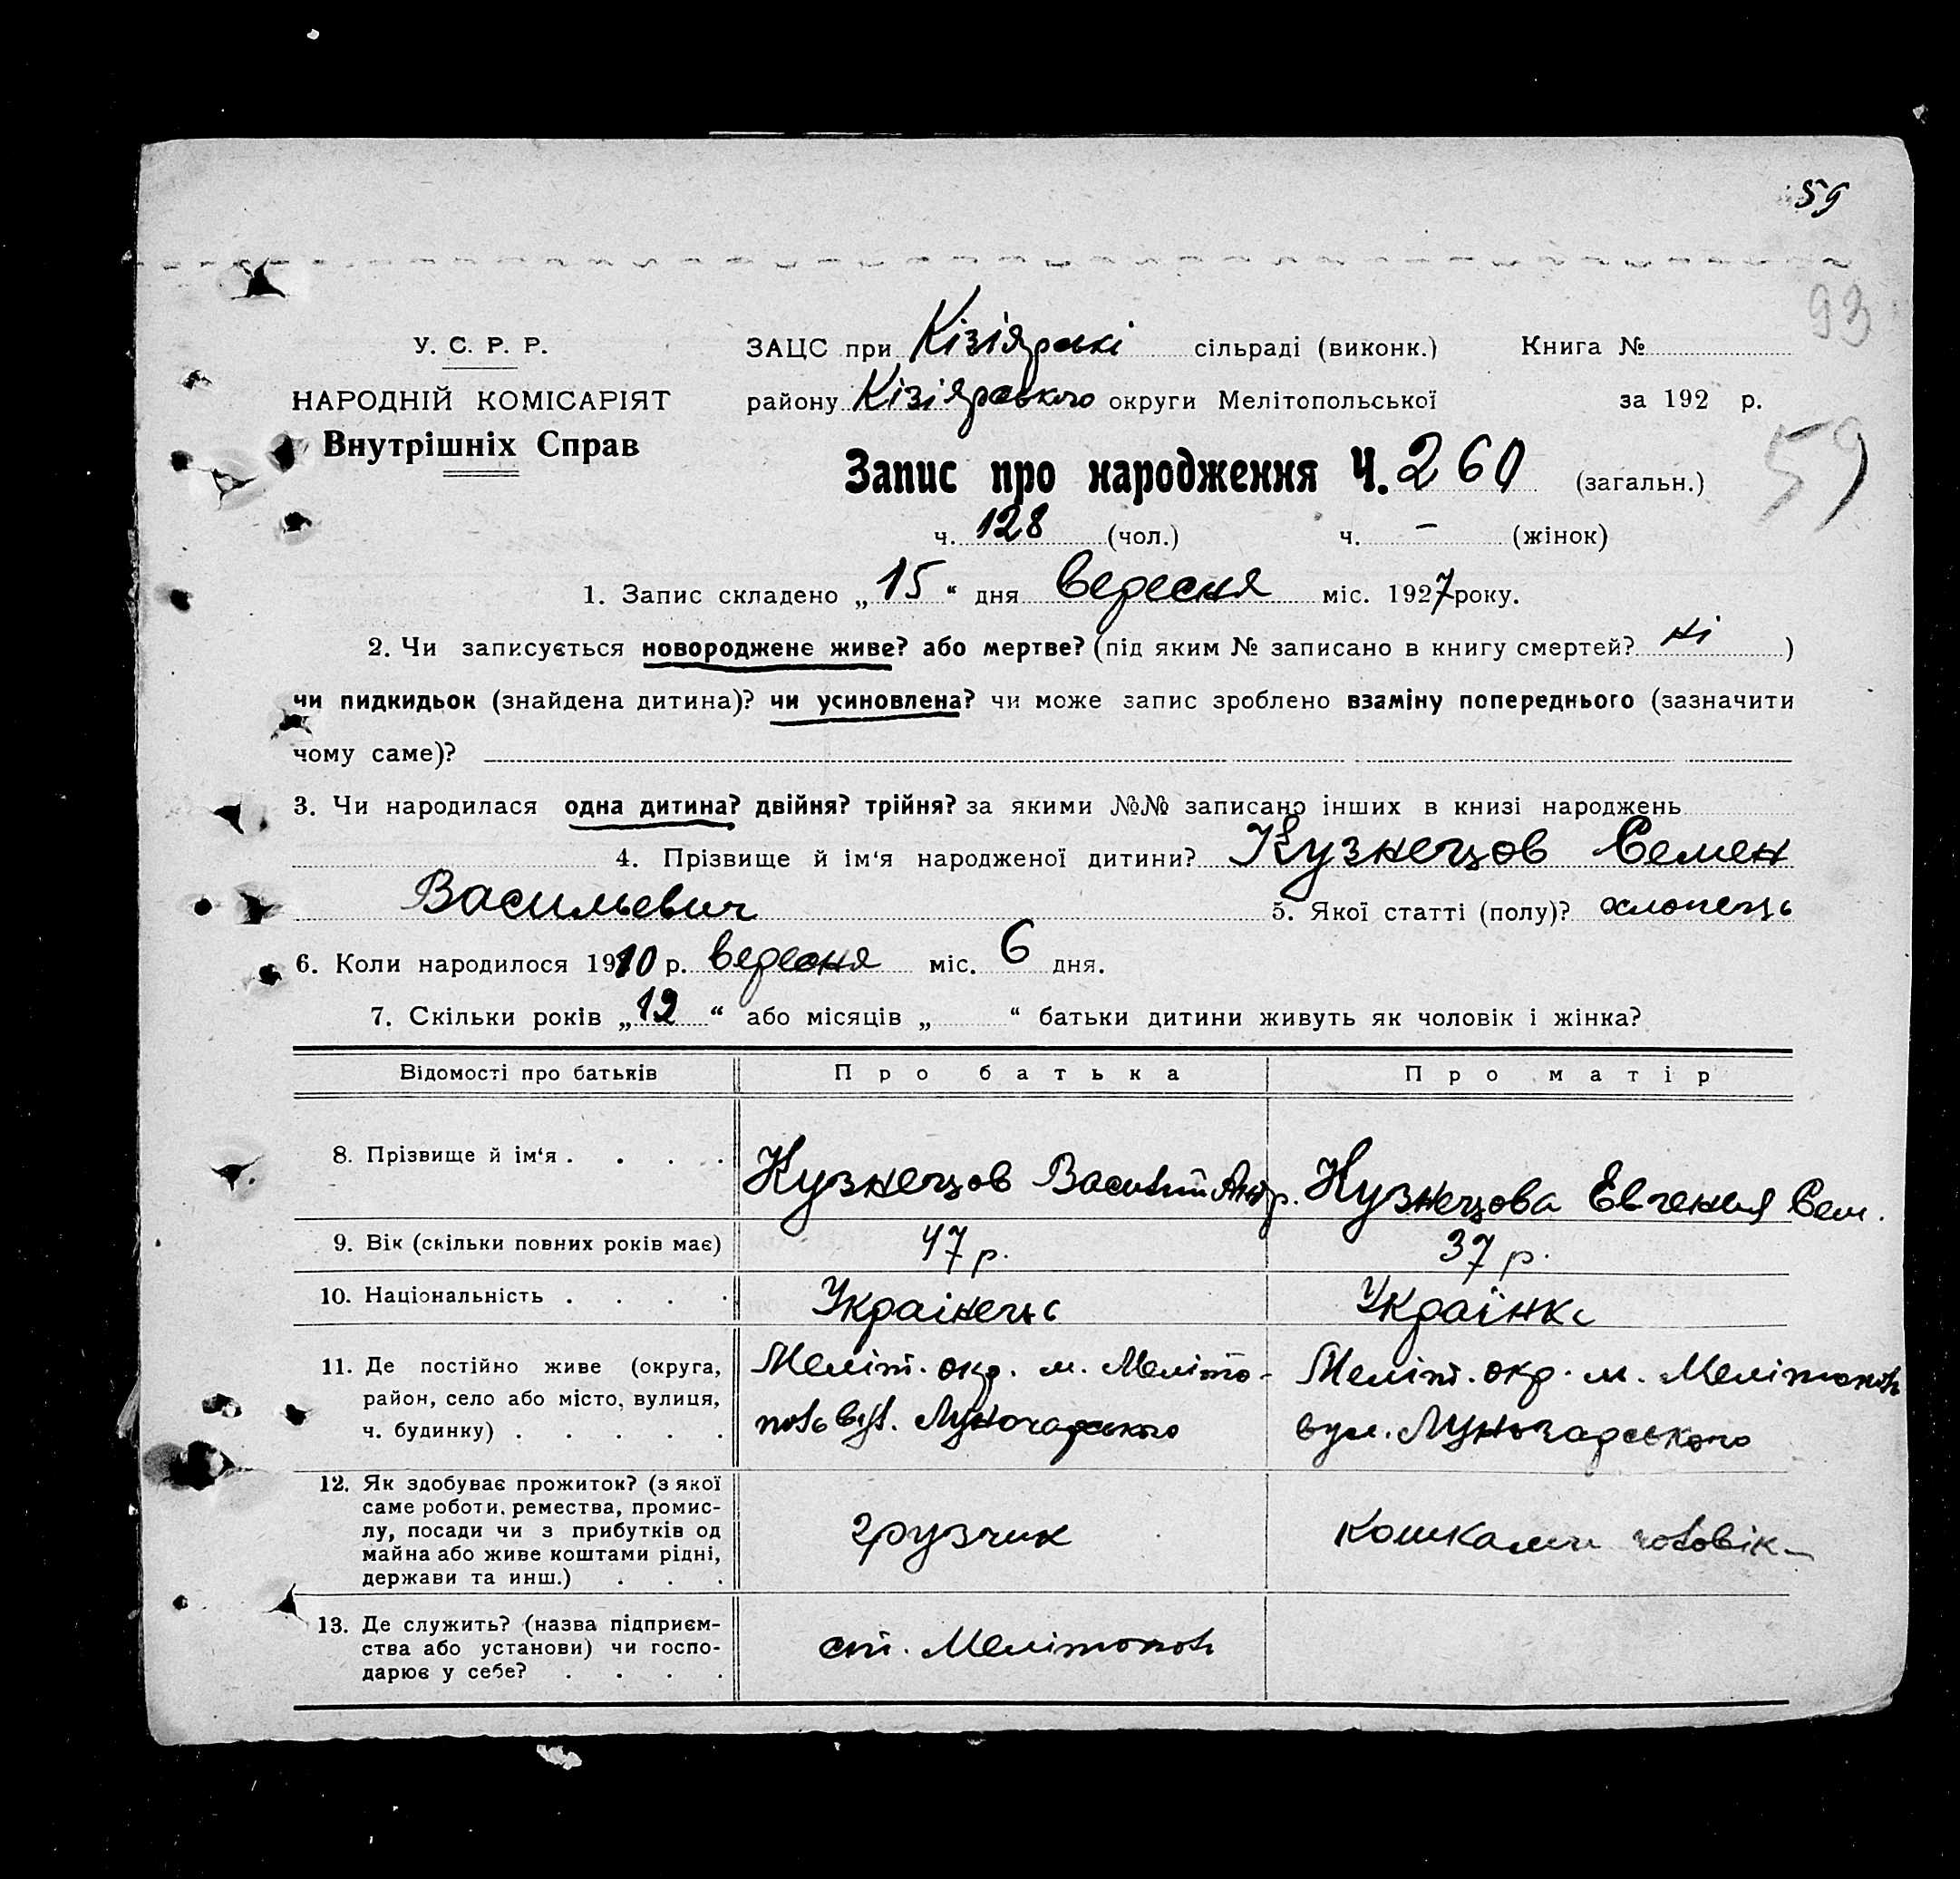 59
93
У. С. Р. Р.
НАРОДНІЙ КОМІСАРІЯТ
Внутрішніх Справ
ЗАЦС при Кізіярські сільраді (виконк.) Книга №
району Кізіярського округи Мелітопольської за 192 р.
59
Запис про народження Ч. 260 (загальн.)
ч. 128 (чол.) ч. – (жінок)
1. Запис складено „15“ дня Вересня міс. 1927 року.
2. Чи записується новороджене живе? або мертве? (під яким № записано в книгу смертей? ні )
чи пидкидьок (знайдена дитина)? чи усиновлена? чи може запис зроблено взаміну попереднього (зазначити
чому саме)?
3. Чи народилася одна дитина? двійня? трійня? за якими №№ записано інших в книзі народжень
4. Прізвище й ім‘я народженої дитини? Кузнецов Семен
Васильевич 5. Якої статті (полу)? хлопець
6. Коли народилося 1910 р. вересня міс. 6 дня.
7. Скільки років „12“ або місяців „ “ батьки дитини живуть як чоловік і жінка?
Відомості про батьків Про батька Про матір
8. Прізвище й ім‘я . . . . Кузнецов Василий Андр. Кузнецова Евгения Сем.
9. Вік (скільки повних років має) 47 р. 37 р.
10. Національність . . . . Украінець Українка
11. Де постійно живе (округа, район, село або місто, вулиця, ч. будинку) . . . . .
Меліт. окр. м. Меліто-
поль вул. Луначарського
Меліт. окр. м. Мелітополь
вул. Луначарського
12. Як здобуває прожиток? (з якої
саме роботи, ремества, промис-
лу, посади чи з прибутків од
майна або живе коштами рідні,
держави та инш.) . . .
грузчик
кошками чоловік–
13. Де служить? (назва підприєм-
ства або установи) чи госпо-
дарює у себе? . . . .
ст. Мелітополь